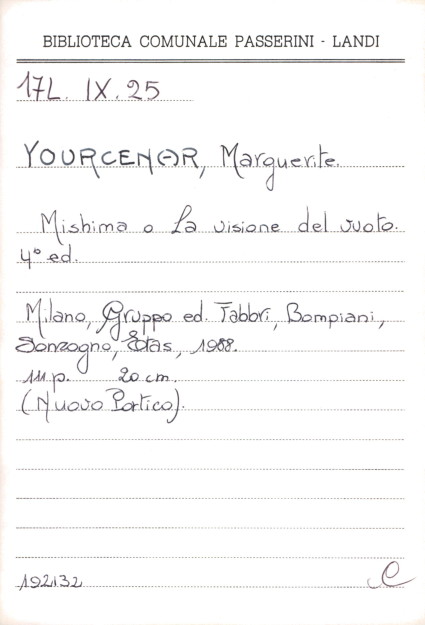 BIBLIOTECA COMUNALE PASSERINI - LANDI
17L. IX. 25
YOURCENAR, Marguerite.
Mishima o La visione del vuoto.
4° ed.
Milano, Gruppo ed. Fabbri, Bompiani,
Sonzogno, Etas, 1988.
111 p. 20 cm.
(Nuovo Portico).
192132
C